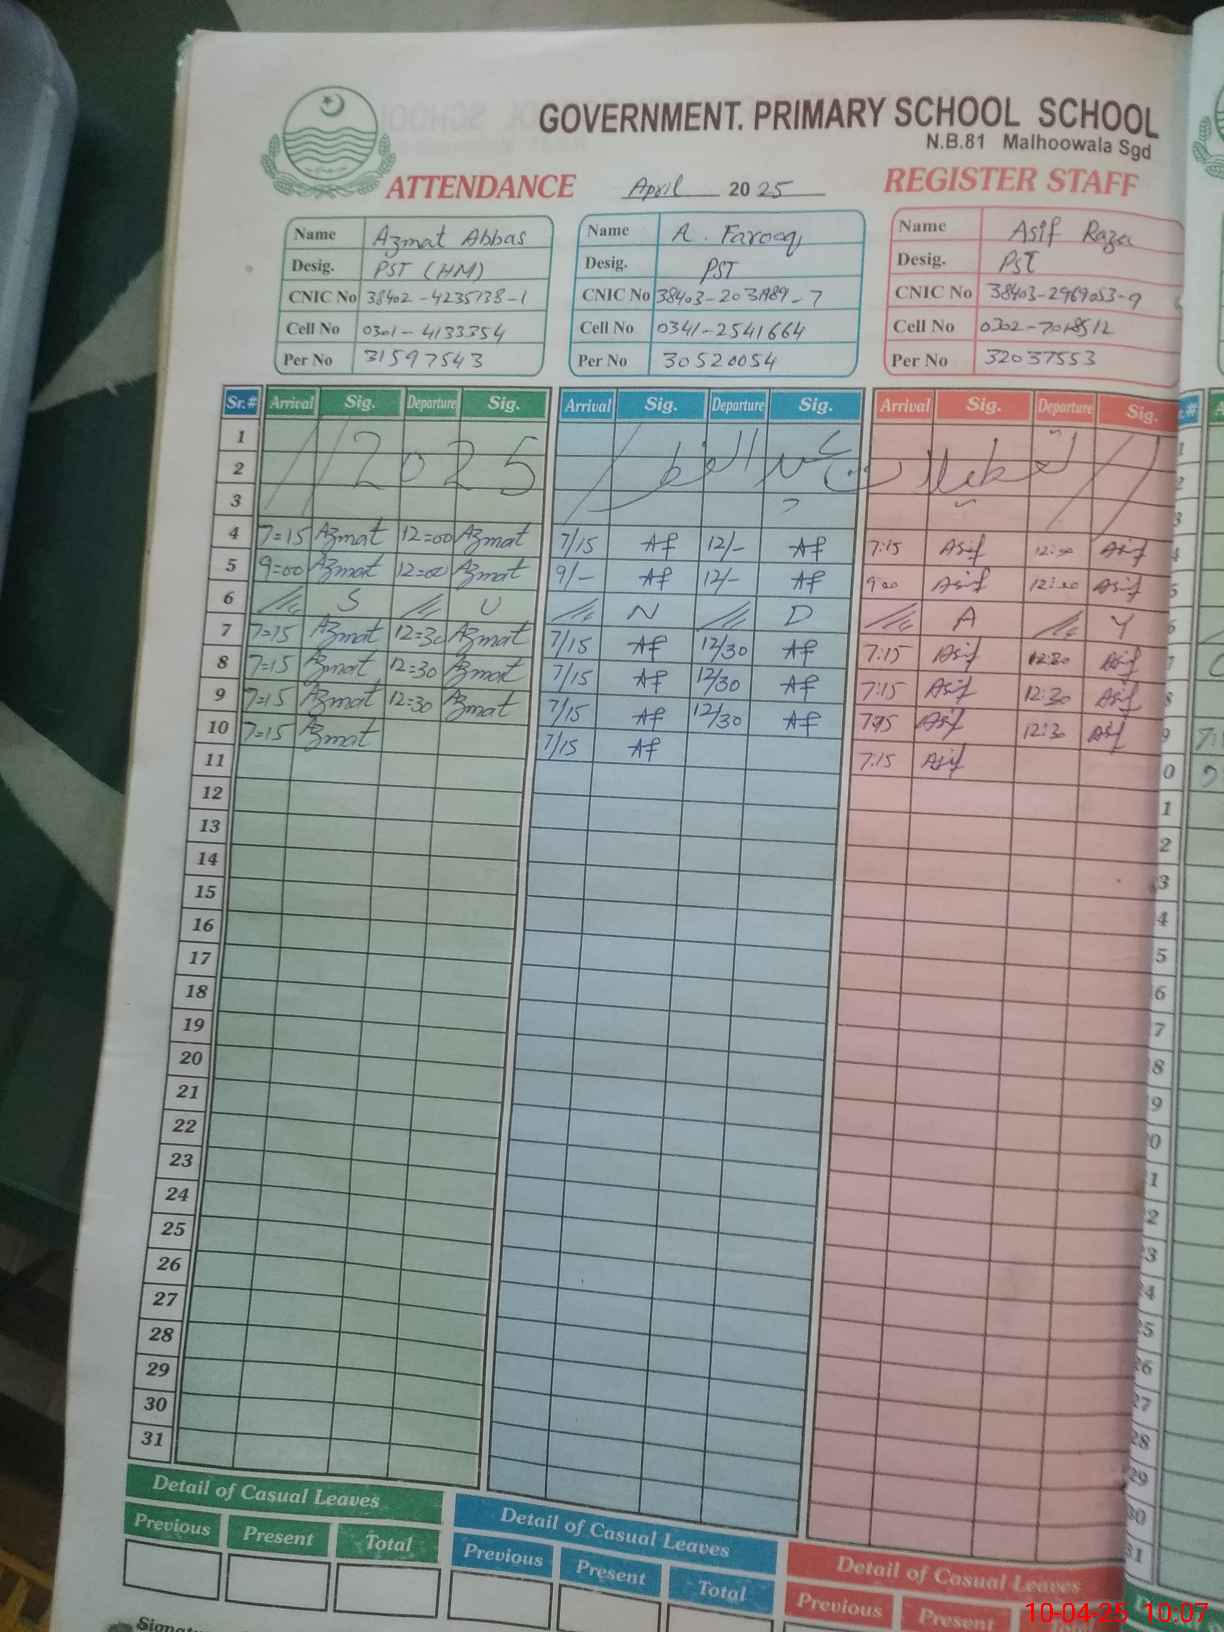 GOVERNMENT. PRIMARY SCHOOL SCHOOL
N.B.81 Malhoowala Sgd
ATTENDANCE April 2025 REGISTER STAFF
Name Azmat Abbas Name A. Farooq Name Asif Raza
Desig. PST (HM) Desig. PST Desig. PST
CNIC No 38402-4235138-1 CNIC No 38403-2031989-7 CNIC No 38403-2969053-9
Cell No 0301-4133354 Cell No 0341-2541664 Cell No 0302-7018512
Per No 31597543 Per No 30520054 Per No 32037553
Sr.# Arrival Sig. Departure Sig. Arrival Sig. Departure Sig. Arrival Sig. Departure Sig.
1
2 2025 تعطیلات عید الفطر
3
4 7=15 Azmat 12=00 Azmat 7/15 AF 12/- AF 7:15 Asif 12:00 Asif
5 9=00 Azmat 12=00 Azmat 9/- AF 12/- AF 9:00 Asif 12:00 Asif
6 S U N D A Y
7 7=15 Azmat 12=30 Azmat 7/15 AF 12/30 AF 7:15 Asif 12:30 Asif
8 7=15 Azmat 12=30 Azmat 7/15 AF 12/30 AF 7:15 Asif 12:30 Asif
9 7=15 Azmat 12=30 Azmat 7/15 AF 12/30 AF 7:15 Asif 12:30 Asif
10 7=15 Azmat 7/15 AF 7:15 Asif
11
12
13
14
15
16
17
18
19
20
21
22
23
24
25
26
27
28
29
30
31
Detail of Casual Leaves Detail of Casual Leaves Detail of Casual Leaves
Previous Present Total Previous Present Total Previous Present Total
10-04-25 10:07